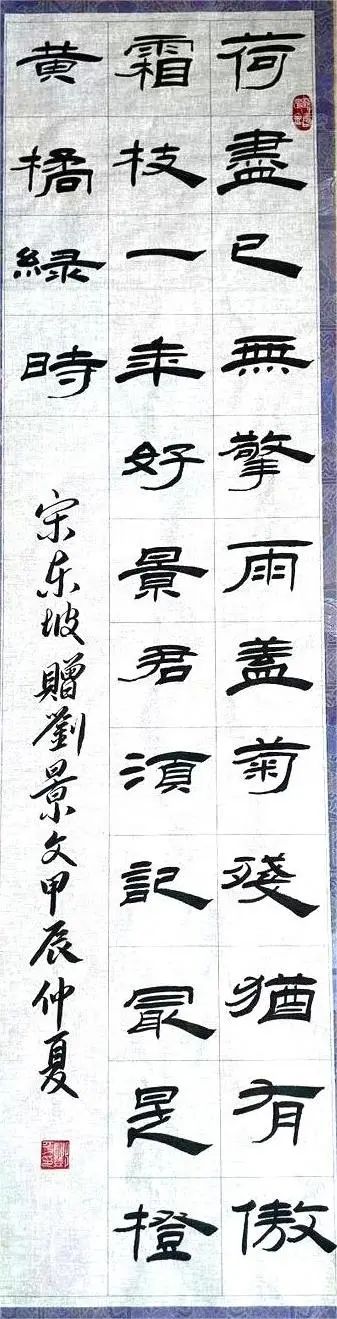 荷盡已無擎雨盖菊殘猶有傲
霜枝一年好景君須記最是橙
黄橘緑時
宋东坡贈劉景文甲辰仲夏